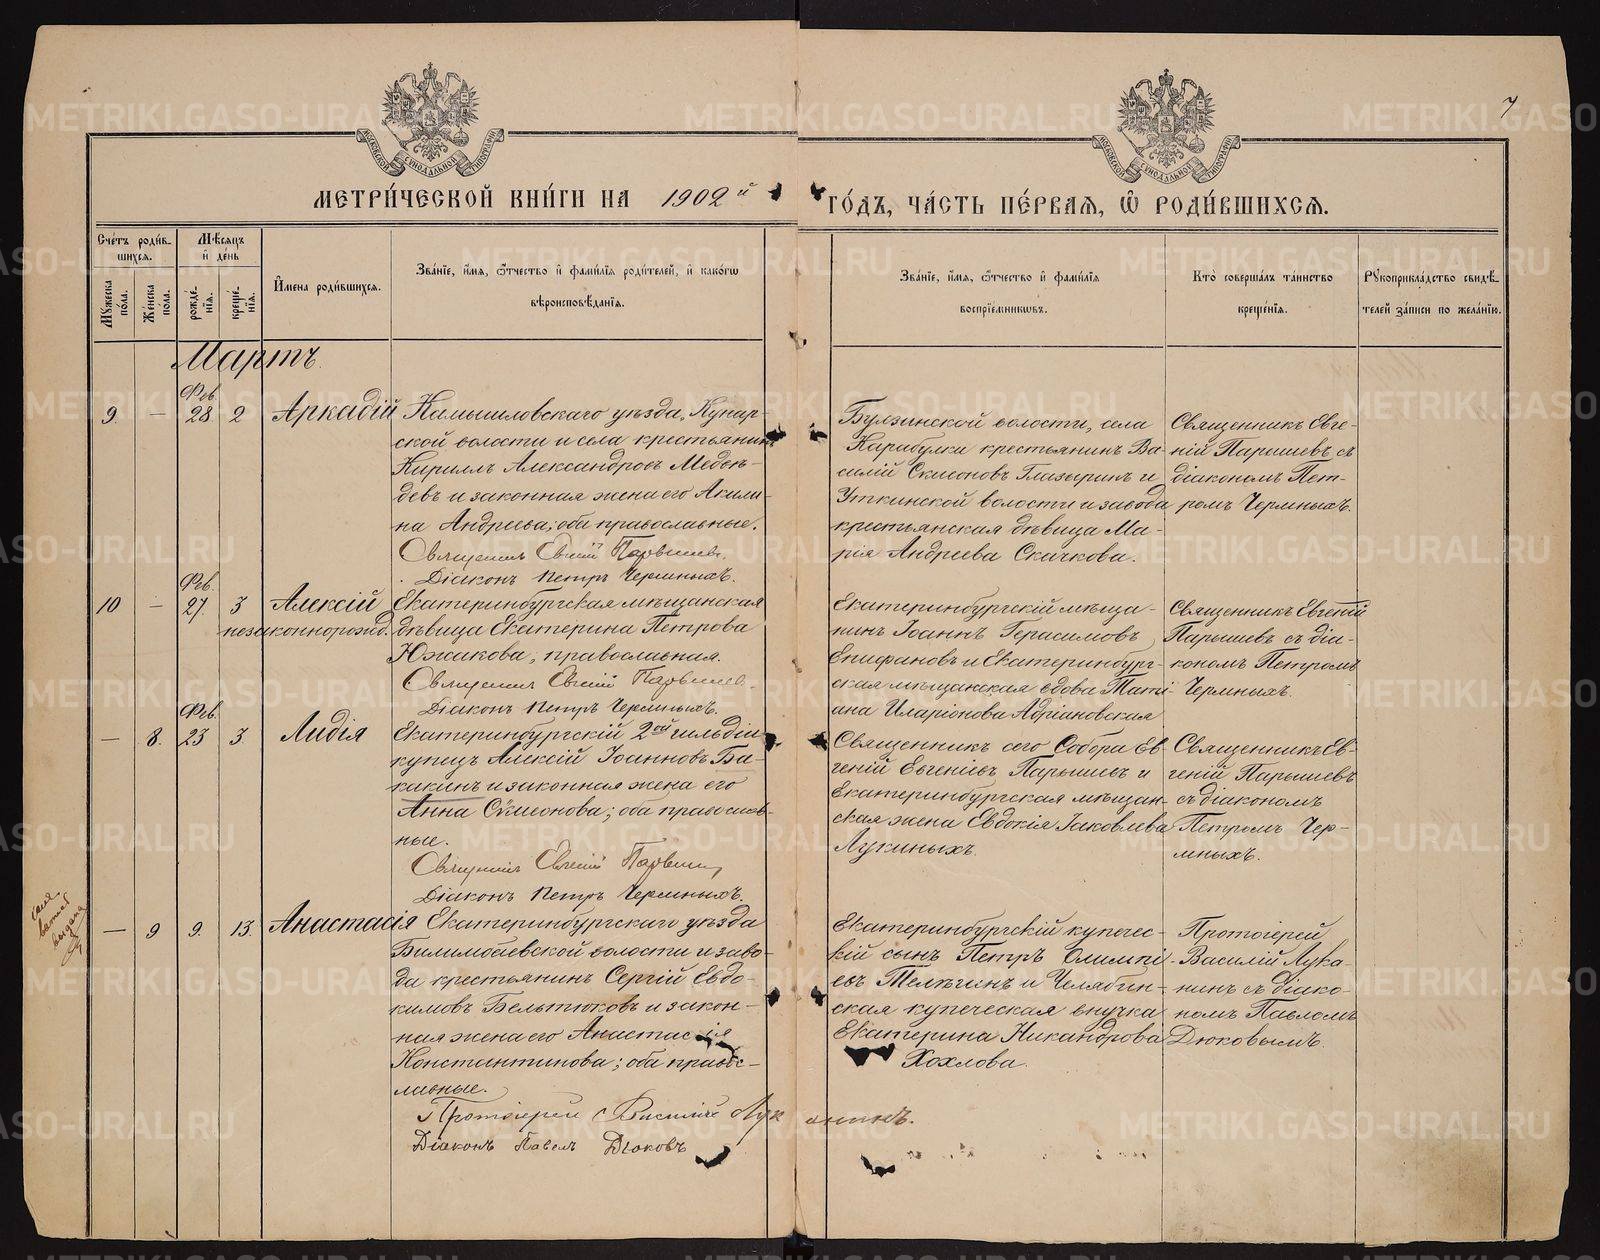 7
МЕТРИ́ЧЕСКОЙ КНИ́ГИ НА 1902й ГО́ДЪ, ЧА́СТЬ ПЕ́РВАЯ, Ѡ҆ РОДИ́ВШИХСЯ.
Сче́тъ роди́вшихся.
Мужеска по́ла.
Же́нска по́ла.
Мѣсяцъ и҆ де́нь
рожде́нїя.
креще́нїя.
И҆мена роди́вшихся.
Зва́нїе, и҆́мя, ѻ҆́тчество и҆ фами́лїя роди́телей, и҆ како́гѡ
вѣроисповѣ́данїя.
Зва́нїе, и҆́мя, ѻ҆́тчество и҆ фами́лїя
воспрїе́мникѡвъ.
Кто̀ соверша́лъ та́инство
креще́нїя.
Рукоприкла́дство свидѣ́-
телей за́писи по жела́нїю.
Мартъ
9. — Фев. 28. 2 Аркадій
Камышловскаго уѣзда, Кунар-
ской волости и села крестьянинъ
Кириллъ Александровъ Медвѣ-
девъ и законная жена его Акили-
на Андреева; оба православные.
Священникъ Евгеній Парышевъ.
Діаконъ Петръ Черминыхъ.
Булзинской волости, села
Карабулки крестьянинъ Ва-
силій Симеоновъ Глазыринъ и
Уткинской волости и завода
крестьянская дѣвица Ма-
рія Андреева Скачкова.
Священникъ Евге-
ній Парышевъ съ
діакономъ Пет-
ромъ Черминыхъ.
10 — Фев. 27. 3 Алексій
незаконнорожд.
Екатеринбургская мѣщанская
дѣвица Екатерина Петрова
Южакова, православная.
Священникъ Евгеній Парышевъ.
Діаконъ Петръ Черминыхъ.
Екатеринбургскій мѣща-
нинъ Іоаннъ Герасимовъ
Епифановъ и Екатеринбург-
ская мѣщанская вдова Таті-
ана Иларіонова Адріановская
Священникъ Евгеній
Парышевъ съ діа-
кономъ Петромъ
Черминыхъ.
— 8. Фев. 23 3. Лидія
Екатеринбургскій 2ой гильдіи
купецъ Алексій Іоанновъ Ба-
какинъ и законная жена его
Анна Симеонова; оба православ-
ные.
Священникъ Евгеній Парышевъ
Діаконъ Петръ Черминыхъ.
Священникъ сего Собора Ев-
геній Евгеніевъ Парышевъ и
Екатеринбургская мѣщан-
ская жена Евдокія Іаковлева
Лукиныхъ.
Священникъ Ев-
геній Парышевъ
съ діакономъ
Петромъ Чер-
миныхъ.
выдана
— 9 9. 13. Анастасія
Екатеринбургскаго уѣзда
Билимбаевской волости и заво-
да крестьянинъ Сергій Евдо-
кимовъ Бельтюковъ и закон-
ная жена его Анастасія
Константинова; оба правос-
лавные.
Протоіерей Василій Луканинъ.
Діаконъ Павелъ Дюковъ
Екатеринбургскій купечес-
кій сынъ Петръ Олимпі-
евъ Телѣгинъ и Челябин-
ская купеческая внучка
Екатерина Никандрова
Хохлова.
Протоіерей
Василій Лука-
нинъ съ діако-
номъ Павломъ
Дюковымъ.